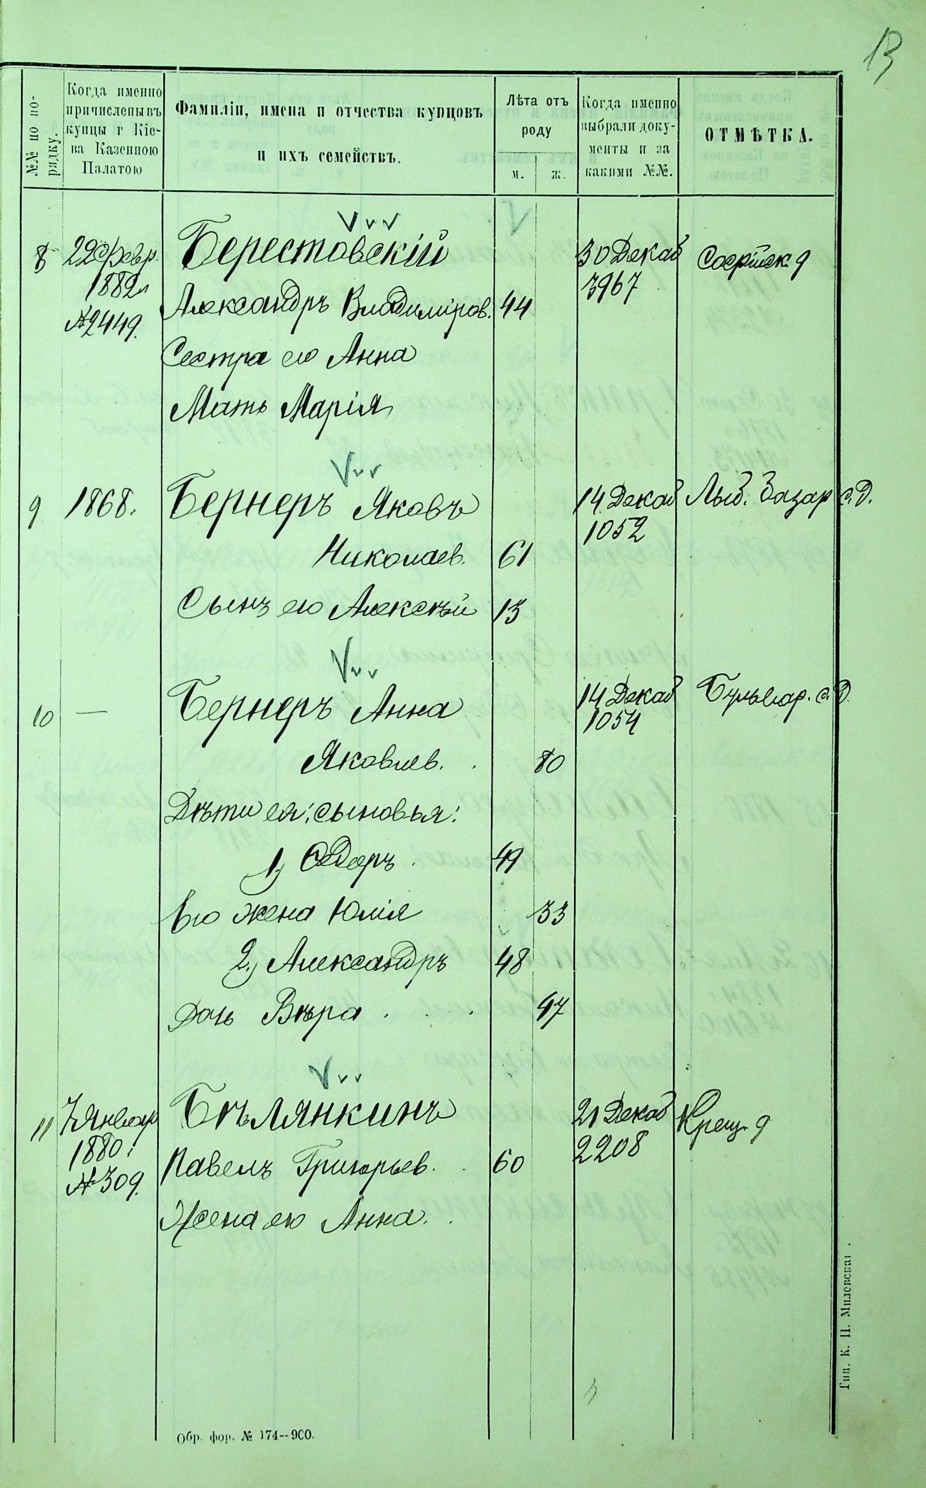 13
№№ по по-
рядку.
Когда именно
причислены въ
купцы г Кіе-
ва Казенною
Палатою
Фамиліи, имена и отчества купцовъ
и ихъ семействъ.
Лѣта отъ
роду
м.
ж.
Когда именно
выбрали доку-
менты и за
какими №№.
ОТМѢТКА.
8
22 Февр.
1882
№2449.
Берестовскій
Александръ Владиміров. 44
Сестра его Анна
Мать Марія
30 Декаб
3967
9 1868. Бернеръ Яковъ
Николаев. 61
Сынъ его Алексѣй 13
14 Декаб
1052
Лыб. базар с.д.
10 — Бернеръ Анна
Яковлев. 80
Дѣти ея: сыновья:
1) Ѳедоръ 49
Его жена Юлія 33
2) Александръ 48
Дочь Вѣра 47
14 Декаб
1054
Бульвар. с.д.
11
7 Январ
1880
№309.
Бѣлянкинъ
Павелъ Григорьев. 60
Жена его Анна.
21 Декаб
2208
Крещ. д
Обр. фор. № 174--900.
Тип. К. Н. Милевскаг.